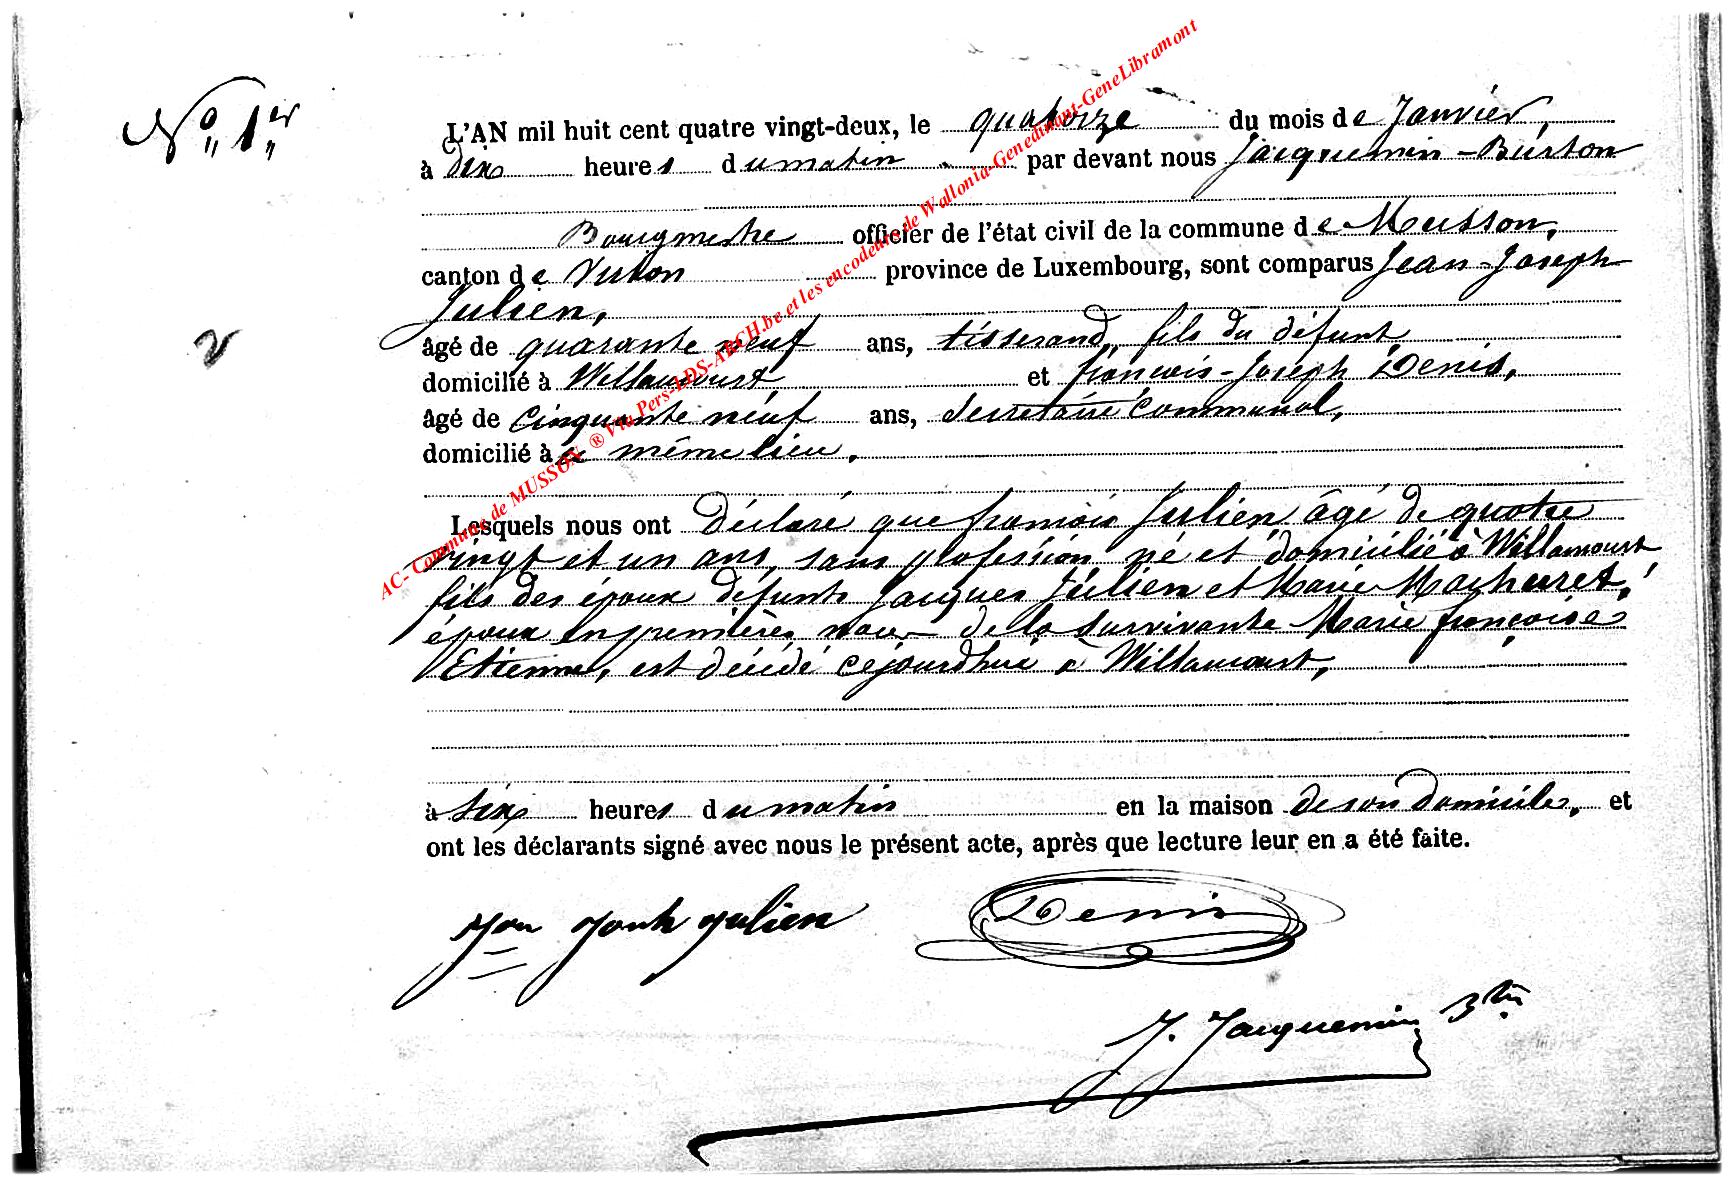 N° 1er
L'AN mil huit cent quatre vingt-deux, le quatorze du mois de Janvier,
à dix heures du matin par devant nous Jacquemin-Burton
Bourgmestre officier de l'état civil de la commune de Musson,
canton de Virton province de Luxembourg, sont comparus Jean-Joseph
Julien,
âgé de quarante neuf ans, tisserand, fils du défunt,
domicilié à Willancourt et françois-Joseph Denis,
âgé de cinquante neuf ans, secrétaire communal,
domicilié à même lieu.
Lesquels nous ont déclaré que françois Julien, âgé de quatre
vingt et un ans, sans profession né et domicilié à Willancourt
fils des époux défunts Jacques Julien et Marie Machuret,
époux en premières noces de la survivante Marie françoise
Etienne, est décédé cejourdhui à Willancourt,
à six heures du matin en la maison de son domicile, et
ont les déclarants signé avec nous le présent acte, après que lecture leur en a été faite.
Julien Denis
J. Jacquemin Btn
AC- Commune de MUSSON ® Via Pers-LDS-ARCH.be et les encodeurs de Wallonia-Genedinant-GeneLibramont